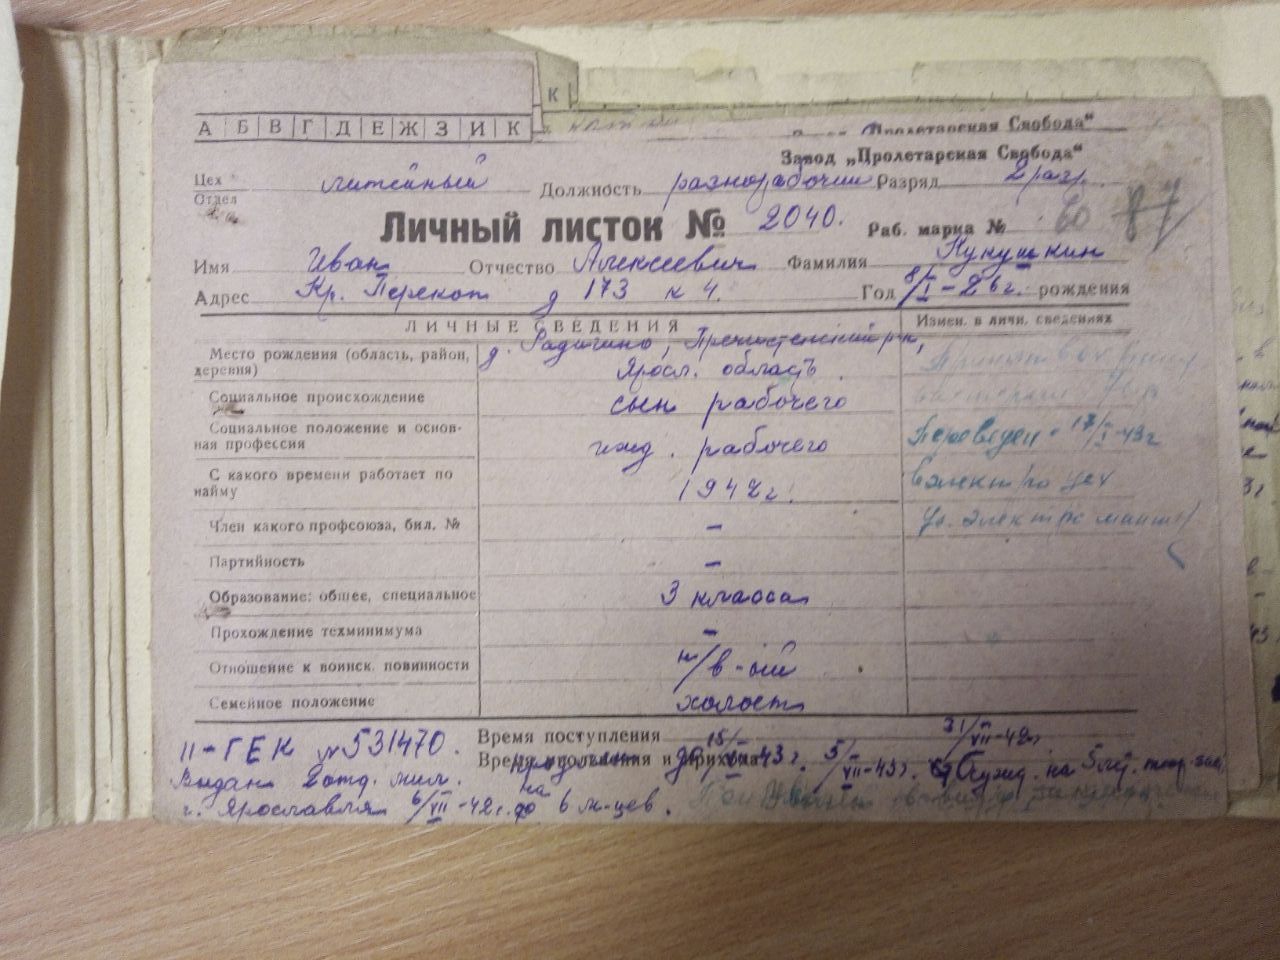 К
А Б В Г Д Е Ж З И К
„Пролетарская Свобода“
Завод „Пролетарская Свобода“
Цех Отдел литейный Должность разнорабочий Разряд 2 разр.
Личный листок № 2040. Раб. марка № 60 87
Имя Иван Отчество Алексеевич Фамилия Кукушкин
Адрес Кр. Перекоп д 173 к 4. Год 8/I-26 г. рождения
ЛИЧНЫЕ СВЕДЕНИЯ Измен. в личн. сведениях
Место рождения (область, район, деревня) д. Пречистенский р-н,
Яросл. область.
Социальное происхождение сын рабочего
Социальное положение и основная профессия ижд. рабочего
Переведен 17/I-43 г
С какого времени работает по найму 1942 г.
в электро цех
Член какого профсоюза, бил. № –
уч. электро монтер
Партийность –
Образование: общее, специальное 3 класса
Прохождение техминимума –
Отношение к воинск. повинности н/в-ой
Семейное положение холост
II-ГЕК № 531470. Время поступления 31/VII-42 г.
Время увольнения и причина 5/VII-43 г. Осужд. на 5 лет
Выдан 2 отд. мил. продлен до 15/VI-43 г.
г. Ярославля 6/VII-42 г. на 6 м-цев.